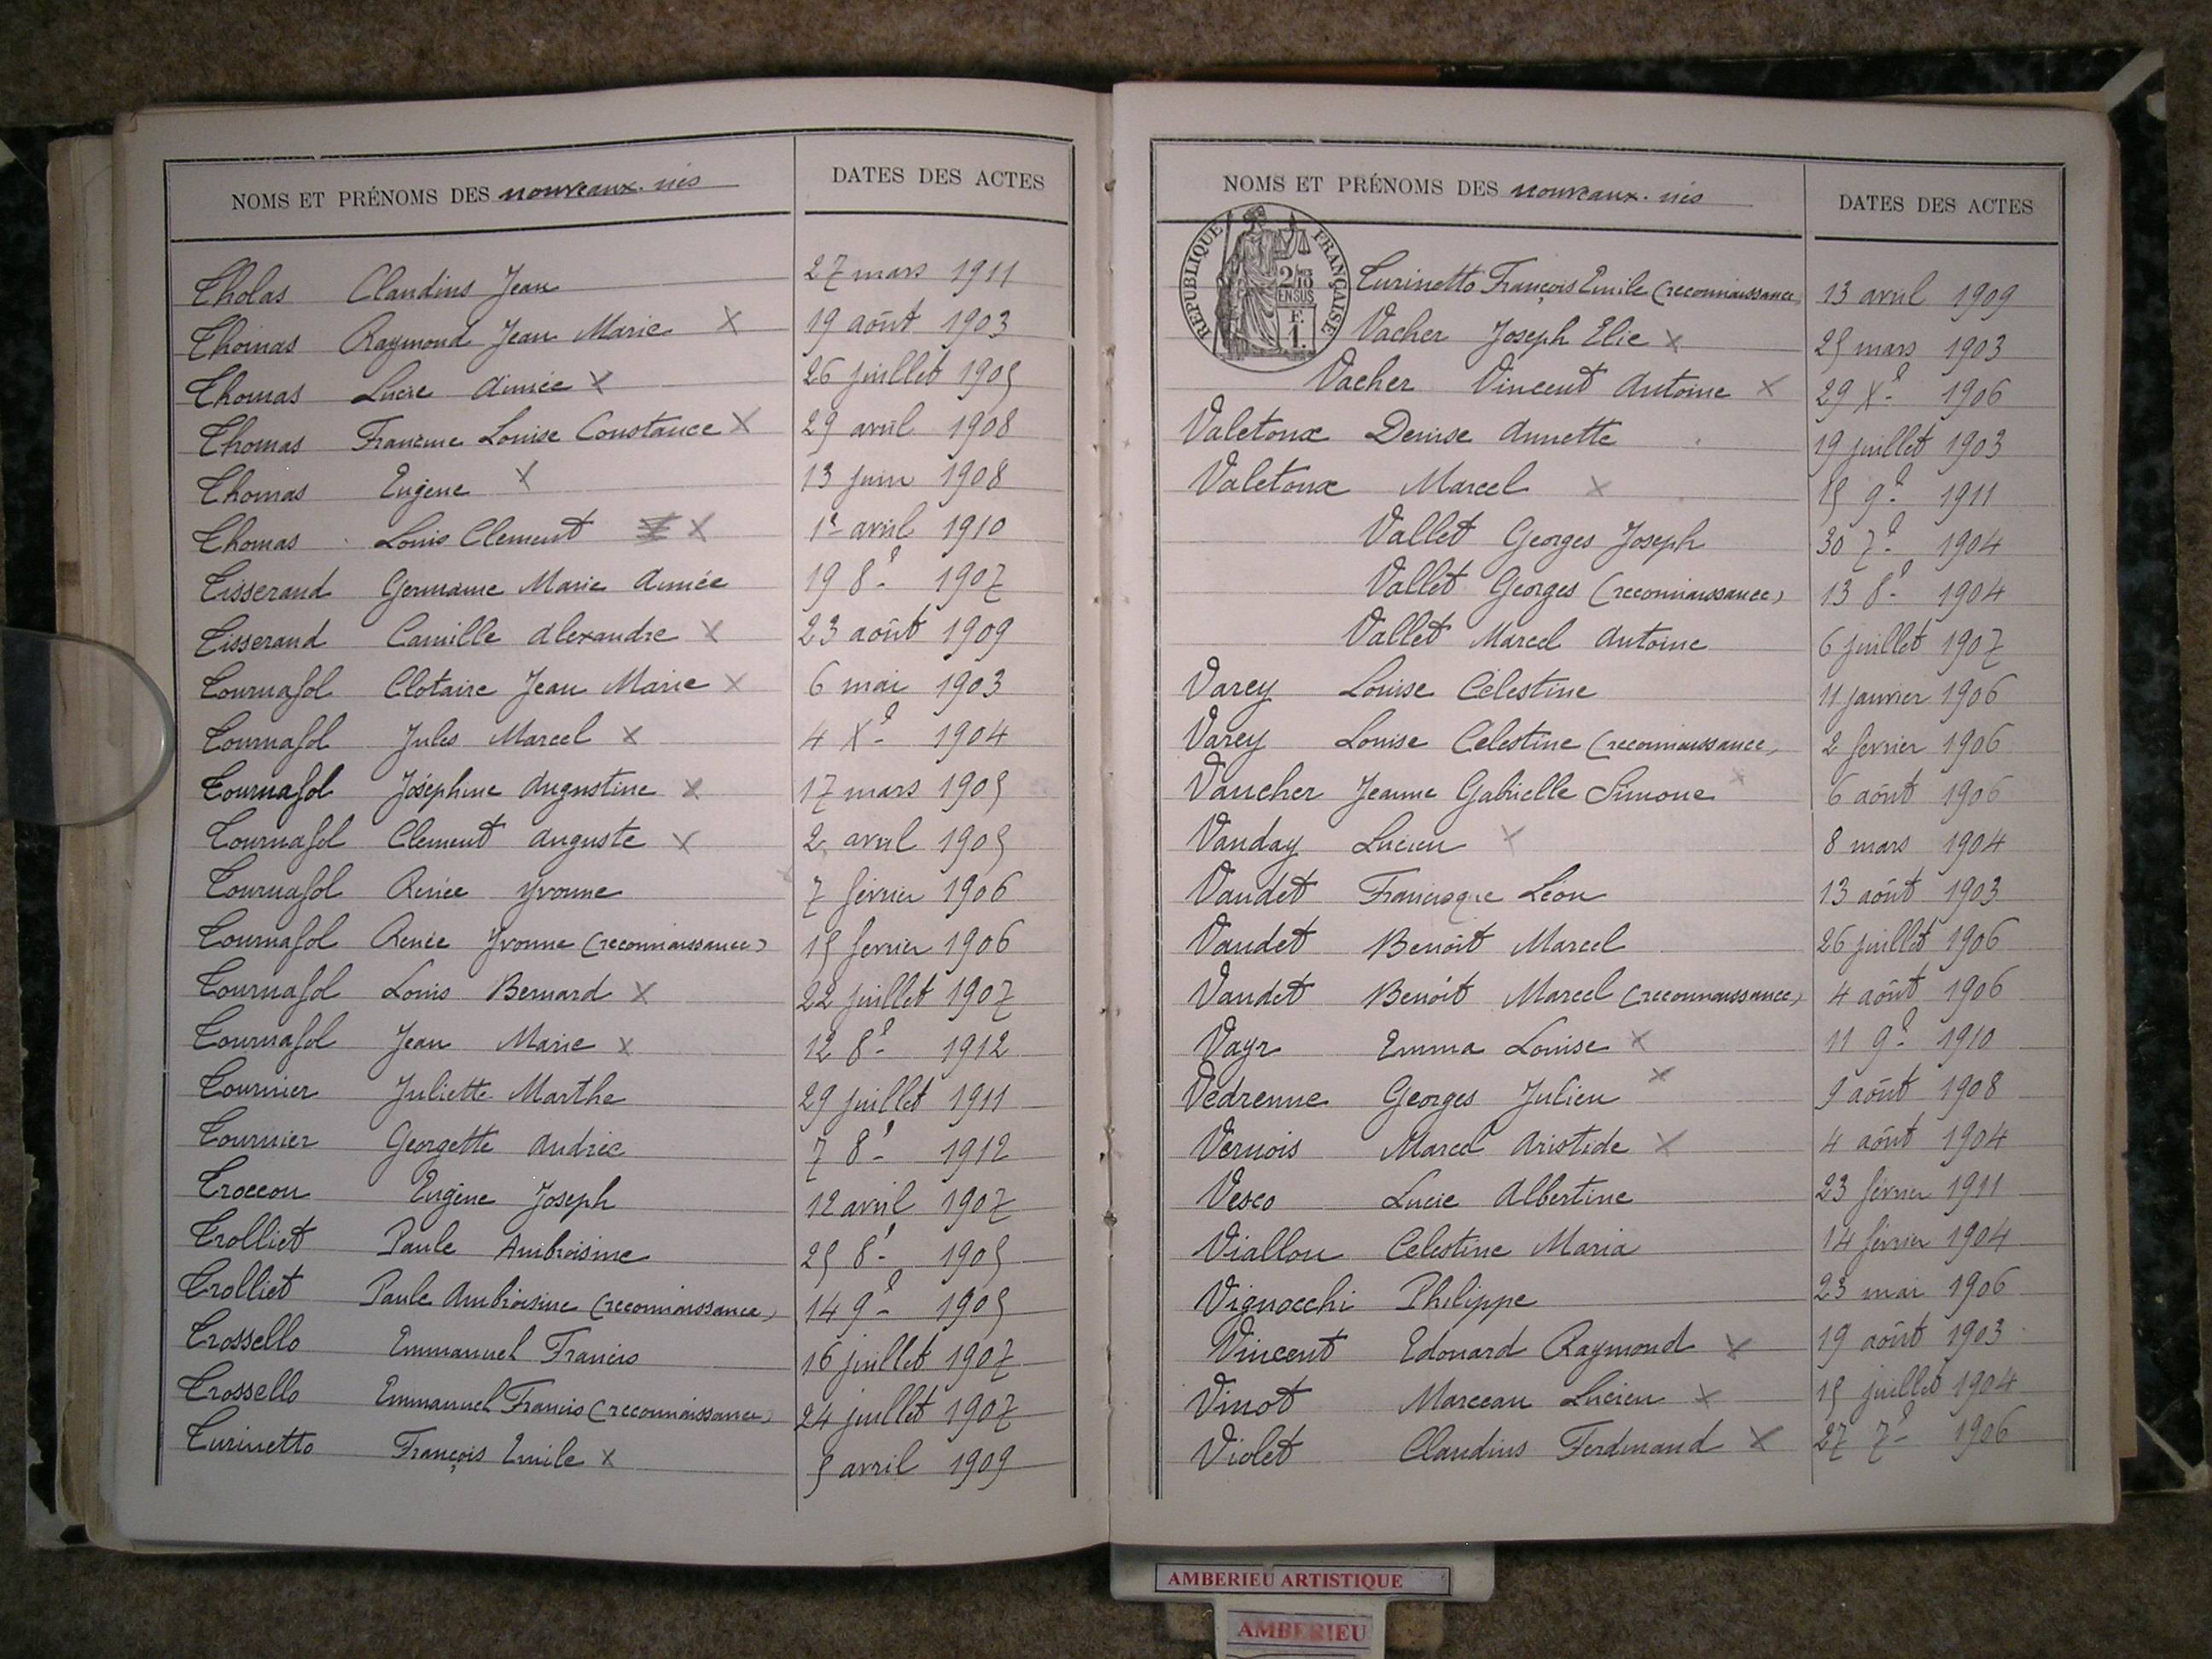 NOMS ET PRÉNOMS DES nouveaux-nés DATES DES ACTES
Tholas Claudius Jean 27 mars 1911
Thomas Raymond Jean Marie X 19 août 1903
Thomas Lucie Aimée X 26 juillet 1905
Thomas Francine Louise Constance X 29 avril 1908
Thomas Eugène X 13 juin 1908
Thomas Louis Clement X 1er avril 1910
Tisserand Germaine Marie Aimée 19 8e 1907
Tisserand Camille Alexandre X 23 août 1909
Tournafol Clotaire Jean Marie X 6 mai 1903
Tournafol Jules Marcel X 4 Xe 1904
Tournafol Joséphine Augustine X 17 mars 1905
Tournafol Clement Auguste X 2 avril 1905
Tournafol Renée Yvonne 7 février 1906
Tournafol Renée Yvonne (reconnaissance) 15 février 1906
Tournafol Louis Bernard X 22 juillet 1907
Tournafol Jean Marie X 12 8e 1912
Tournier Juliette Marthe 29 juillet 1911
Tournier Georgette Andrée 7 8e 1912
Troccon Eugène Joseph 12 avril 1907
Trolliet Paule Ambroisine 25 8e 1905
Trolliet Paule Ambroisine (reconnaissance) 14 9e 1905
Trossello Emmanuel Francis 16 juillet 1907
Trossello Emmanuel Francis (reconnaissance) 24 juillet 1907
Turinetto François Emile X 5 avril 1909
NOMS ET PRÉNOMS DES nouveaux-nés DATES DES ACTES
RÉPUBLIQUE FRANÇAISE
2/10
EN SUS
F.
1.
Turinetto François Emile (reconnaissance) 13 avril 1909
Vacher Joseph Elie X 25 mars 1903
Vacher Vincent Antoine X 29 Xe 1906
Valetoux Denise Annette 19 juillet 1903
Valetoux Marcel X 15 9e 1911
Vallet Georges Joseph 30 7e 1904
Vallet Georges (reconnaissance) 13 8e 1904
Vallet Marcel Antoine 6 juillet 1907
Varey Louise Célestine 11 janvier 1906
Varey Louise Célestine (reconnaissance) 2 février 1906
Vaucher Jeanne Gabrielle Simone X 6 août 1906
Vauday Lucien X 8 mars 1904
Vaudet Francisque Léon 13 août 1903
Vaudet Benoit Marcel 26 juillet 1906
Vaudet Benoit Marcel (reconnaissance) 4 août 1906
Vayr Emma Louise X 11 9e 1910
Vedrenne Georges Julien X 9 août 1908
Vernois Marcel Aristide X 4 août 1904
Vesco Lucie Albertine 23 février 1911
Viallon Celestine Maria 14 février 1904
Vignocchi Philippe 23 mai 1906
Vincent Edouard Raymond X 19 août 1903
Vinot Marceau Lucien X 15 juillet 1904
Violet Claudius Ferdinand X 27 7e 1906
AMBERIEU ARTISTIQUE
AMBERIEU